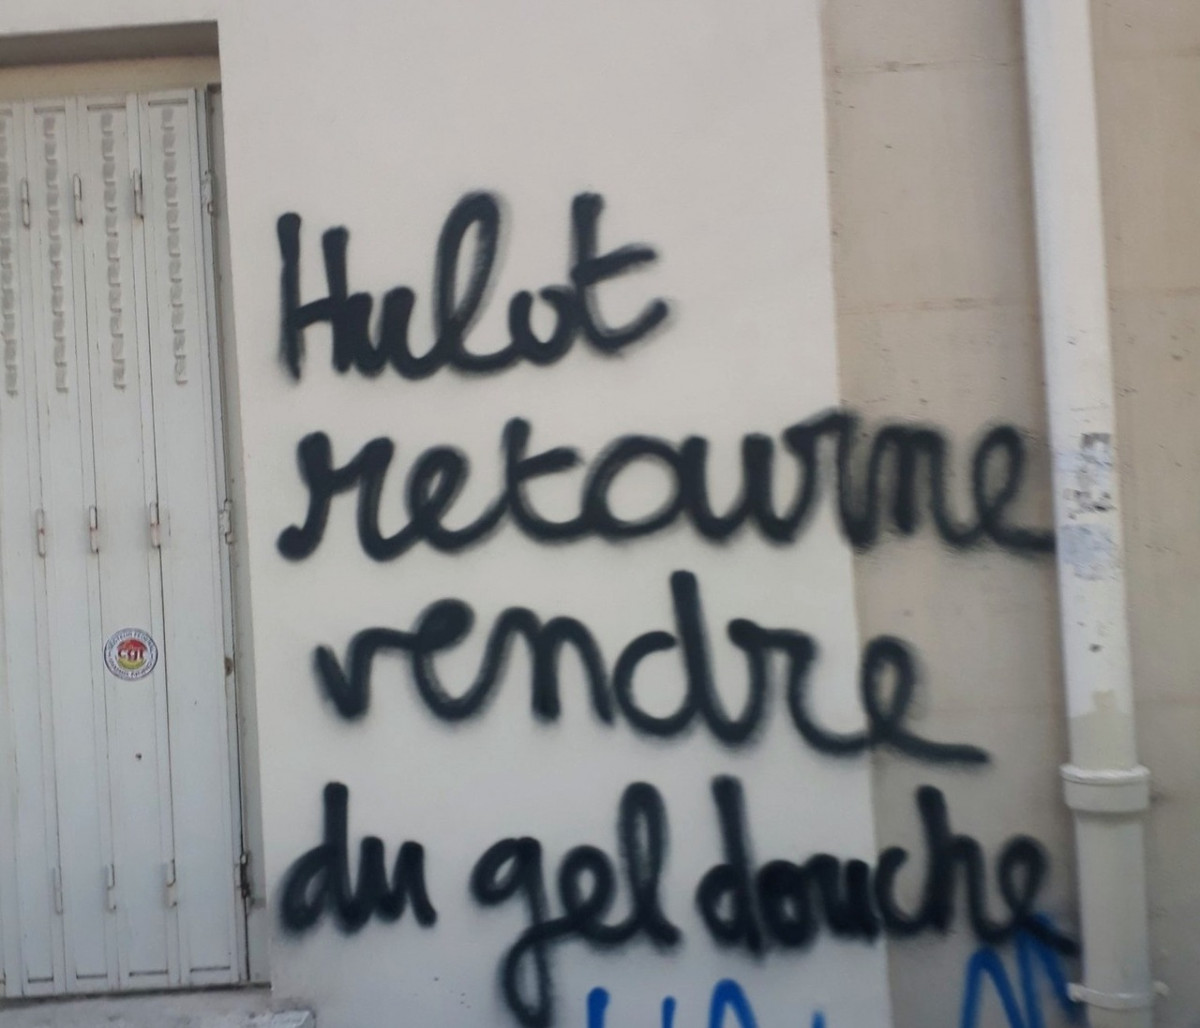 Hulot
retourne
vendre
du gel douche
cgt